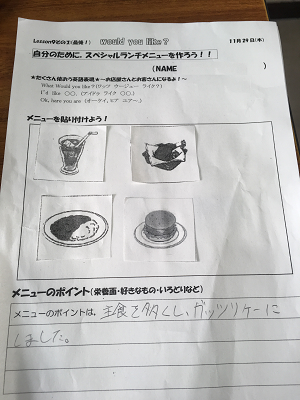 Lesson9その3(最後!) would you like? 11月29日(水)
自分のために、スペシャルランチメニューを作ろう!!
(NAME )
★たくさん使おう英語表現★~お店屋さんとお客さんになるよ!~
What Would you like?(ワッツ ウージュー ライク?)
I'd like ○○. (アイドゥ ライク ○○)
Ok, here you are (オーケイ, ヒア ユアー.)
メニューを貼り付けよう!
メニューのポイント(栄養面・好きなもの・いろどりなど)
メニューのポイントは、主食を多くし、ガッツリケーに
しました。